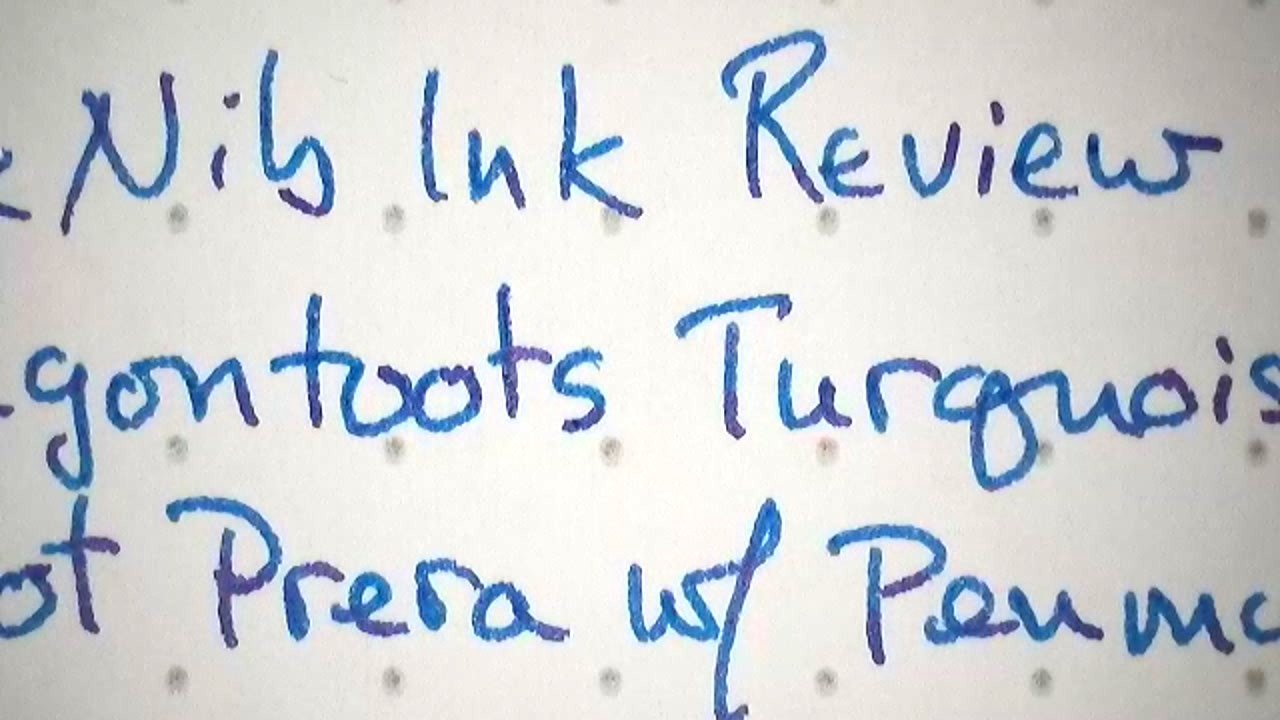 & Nib Ink Review
gontoots Turquois
ot Prera w/ Penma